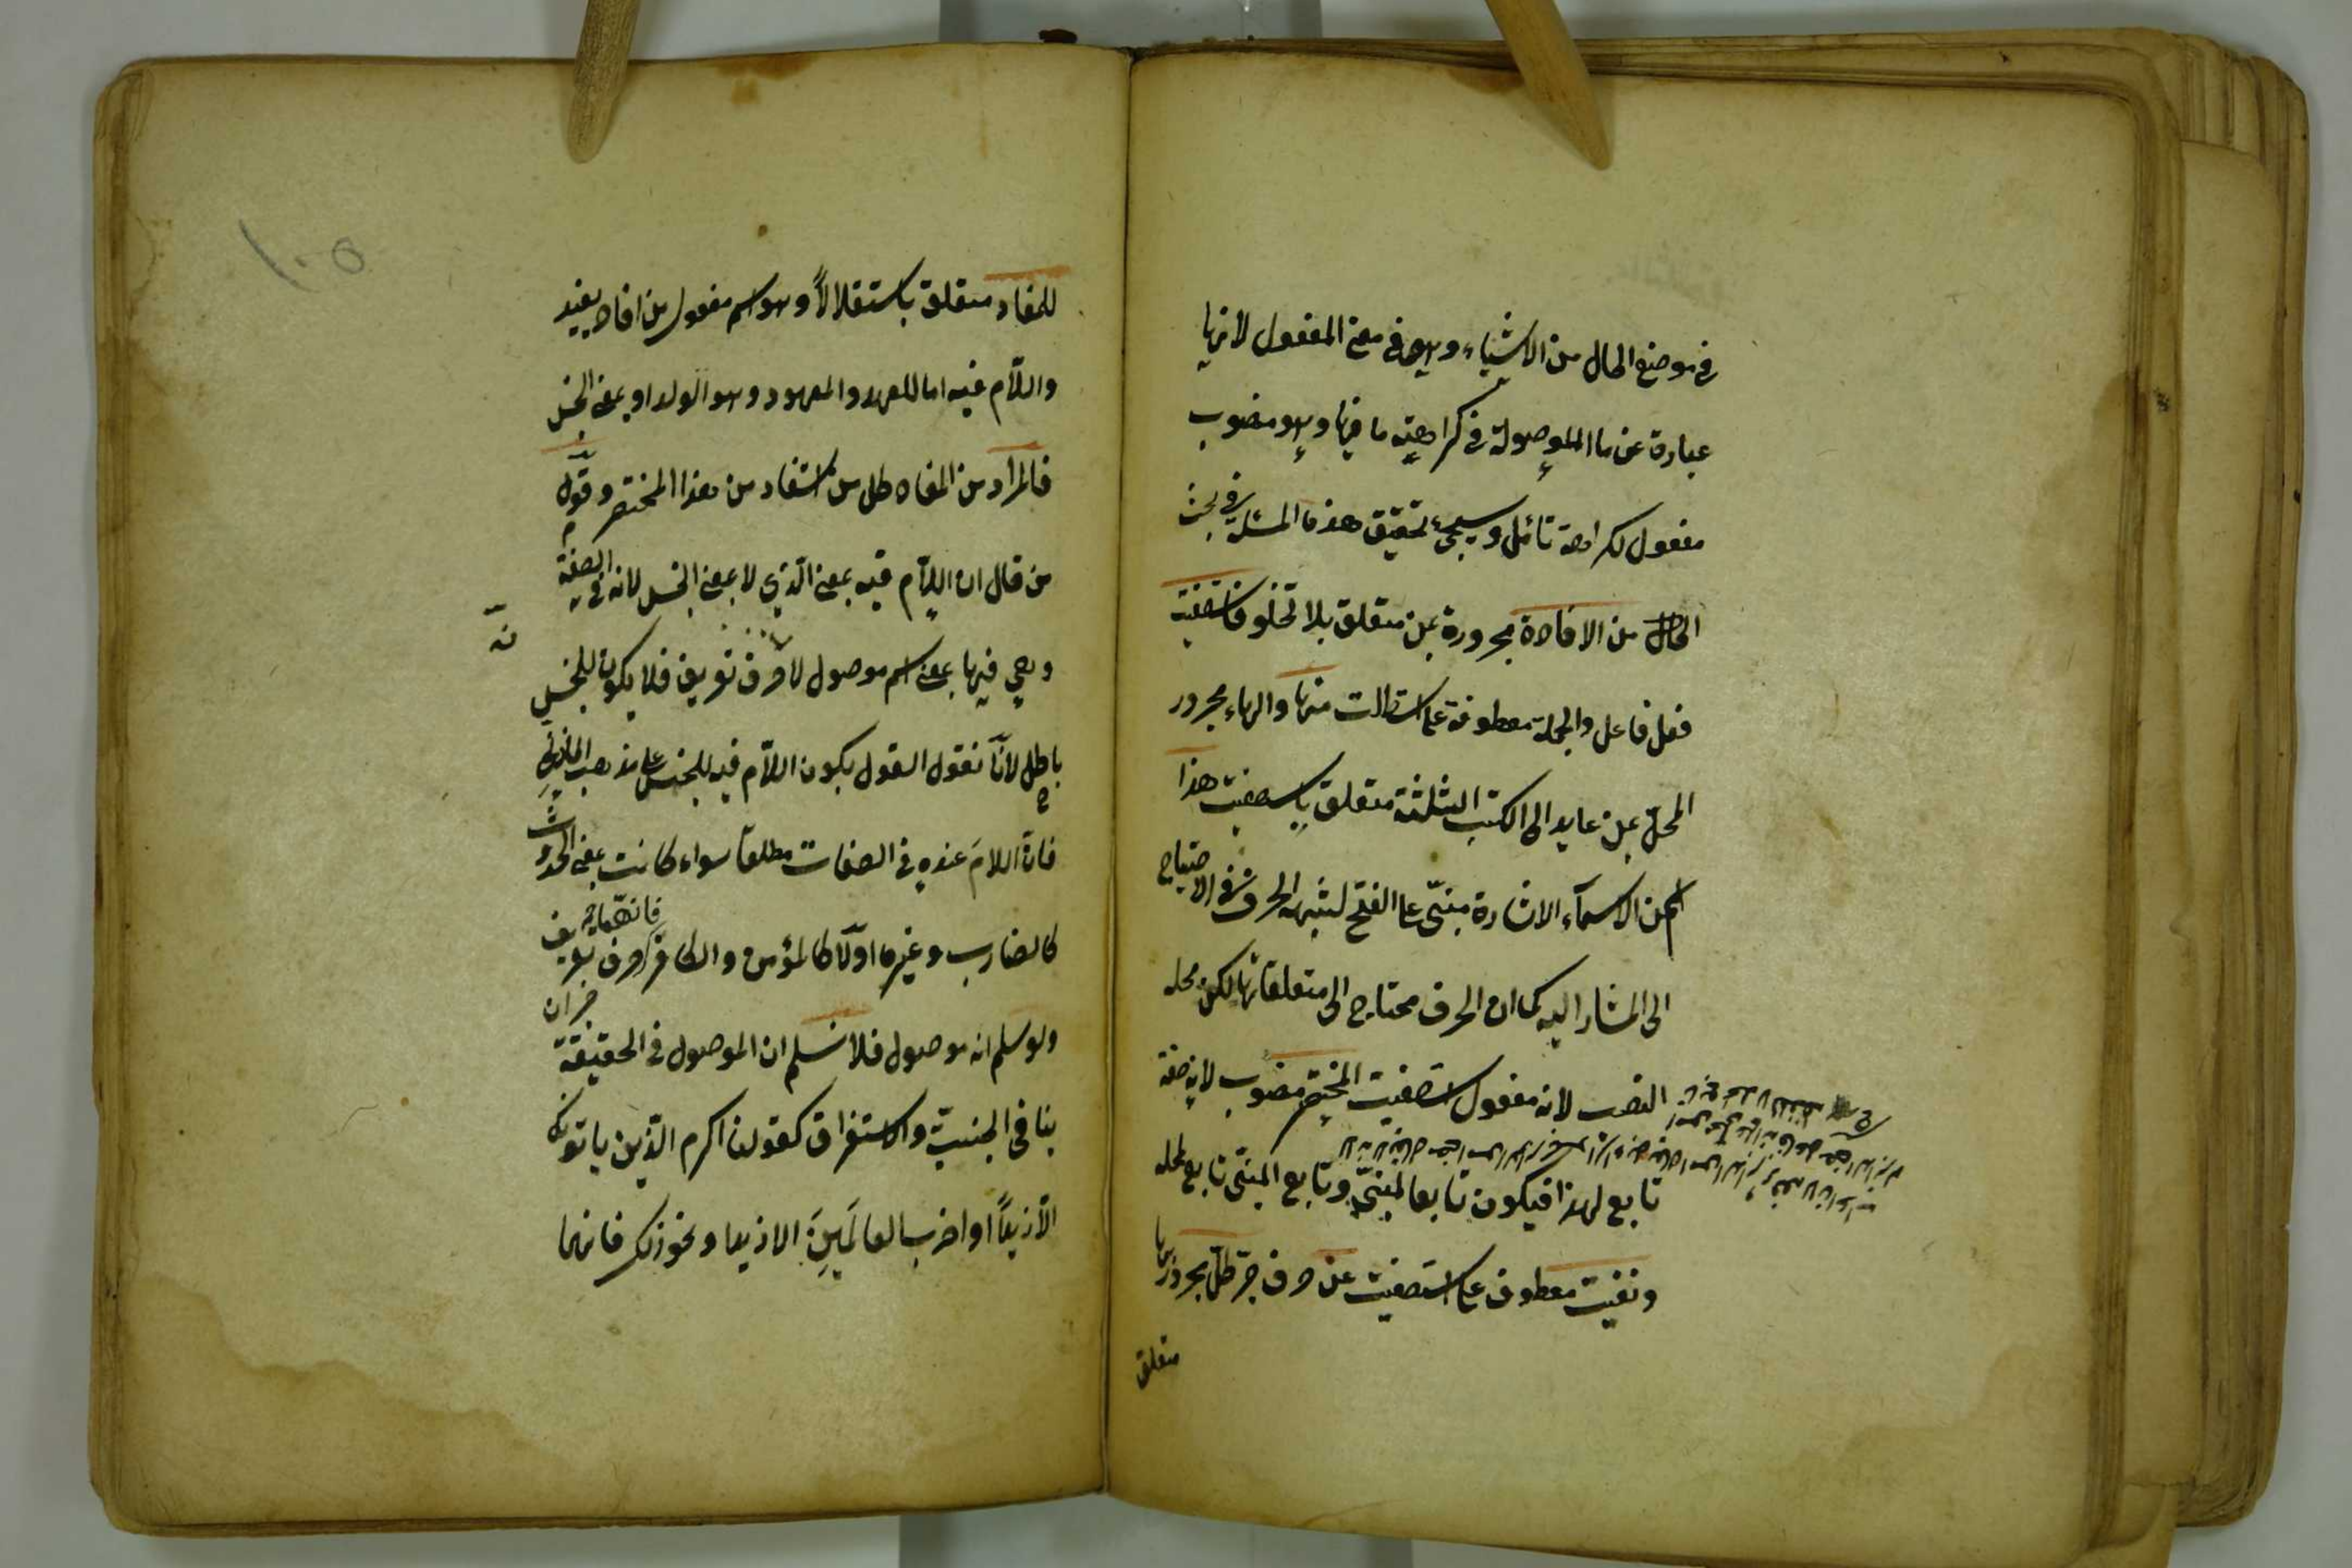 في موضع الحال من الاشياء وهو في معنى المفعول لانها
عبارة عن ما الموصولة في كراهية ما فيها وهو منصوب
مفعول لكراهة تأمل وسيجيء تحقيق هذه المسئلة في بحث
الحال من الافادة مجرورة بمن متعلق بلا تخلو فاستصفيت
فعل فاعل والجملة معطوفة على استطالت منها والهاء مجرور
المحل بمن عايد الى الكتب الثلثة متعلق باستصفيت هذا
اسم من الاسماء الاشارة مبني على الفتح لشبهه الحرف في الاحتياج
الى المشار اليه كما ان الحرف محتاج الى متعلقاتها لكن محله
النصب لانه مفعول استصفيت المختصر منصوب لانه صفة
تابع لهذا فيكون تابعا لمبني وتابع المبني تابع لمحله
ونفيت معطوف على استصفيت عن حرف جر كل مجرور بها
متعلق
١٠٥
للمفاد متعلق باستقلالاً وهو اسم مفعول من افاد يفيد
واللام فيه اما للعهد والمعهود وهو الولد او بمعنى الجنس
فالمراد من المفاد كل من استفاد من هذا المختصر وقول
من قال ان اللام فيه بمعنى الذي لا بمعنى الجنس لانه في الصفة
وهي فيها بمعنى اسم موصول لا حرف تعريف فلا يكون للجنس
باطل لانا نقول القول بكون اللام فيه للجنس على مذهب المازني
فان اللام عنده في الصفات مطلقا سواء كانت بمعنى الحدوث
كالضارب وغيره اولا كالمؤمن والكافر حرف تعريف
ولو سلم انه موصول فلا نسلم ان الموصول في الحقيقة
ينافي الجنسية والاستغراق كقولنا اكرم الذين يأتونك
الا زيداً او اضرب العالمين الا زيدا ونحو ذلك فانهما